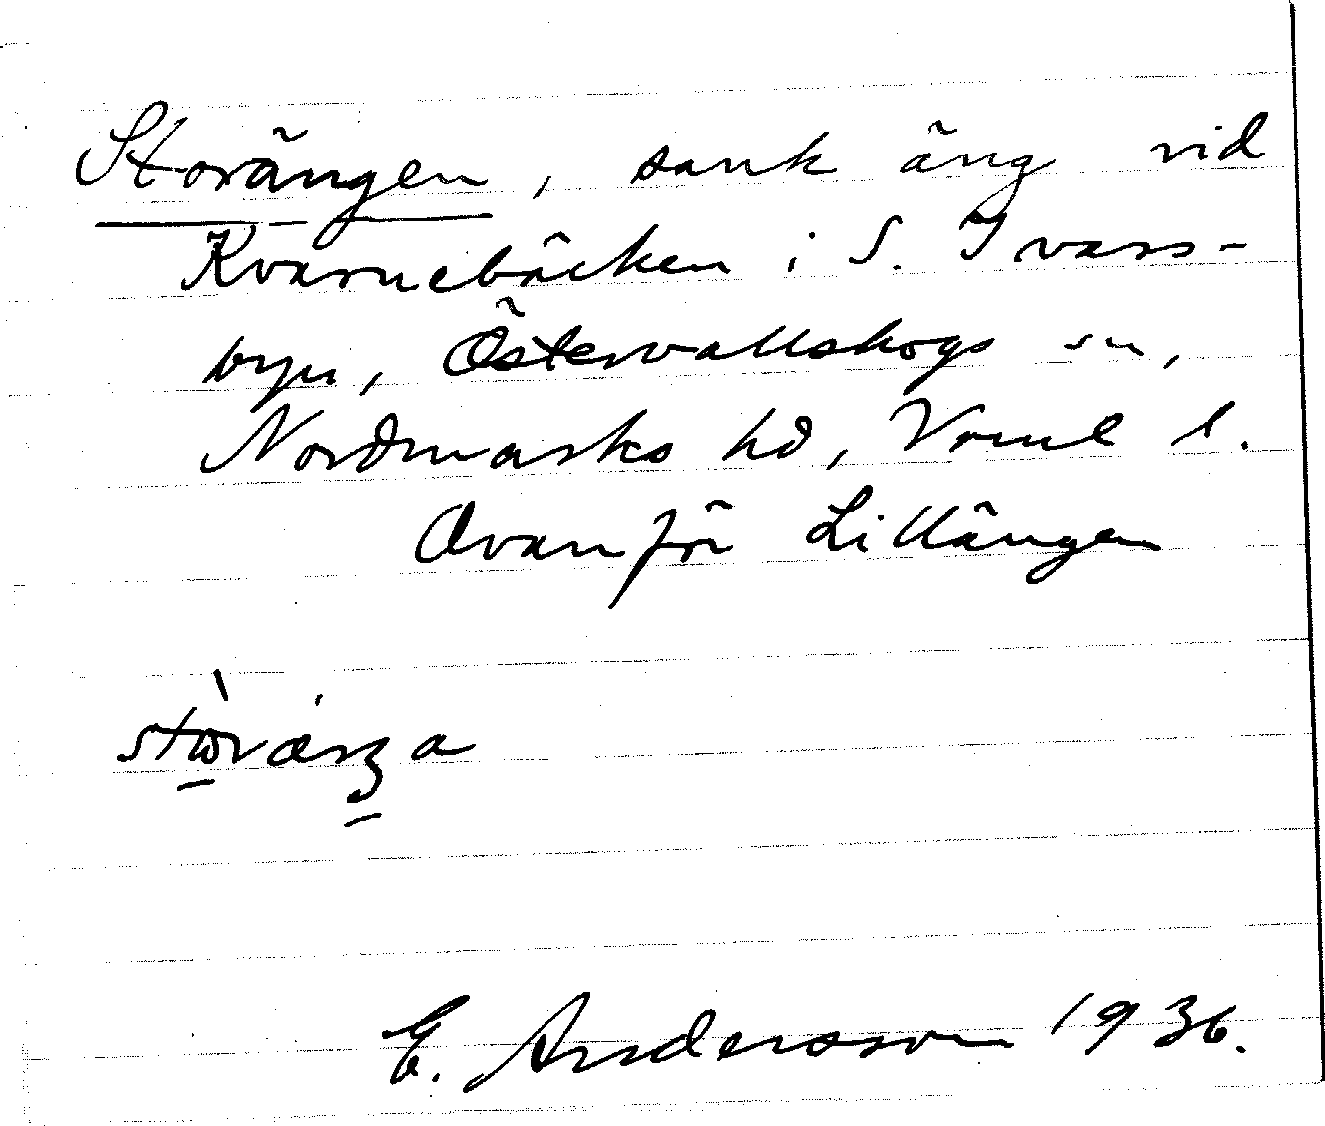 Storängen, sank äng vid
Kvarnebäcken i S. Ivars-
byn, Östervallskogs sn,
Nordmarks hd, Vrml l.
Ovanför Lillängen
E. Andersson 1936.